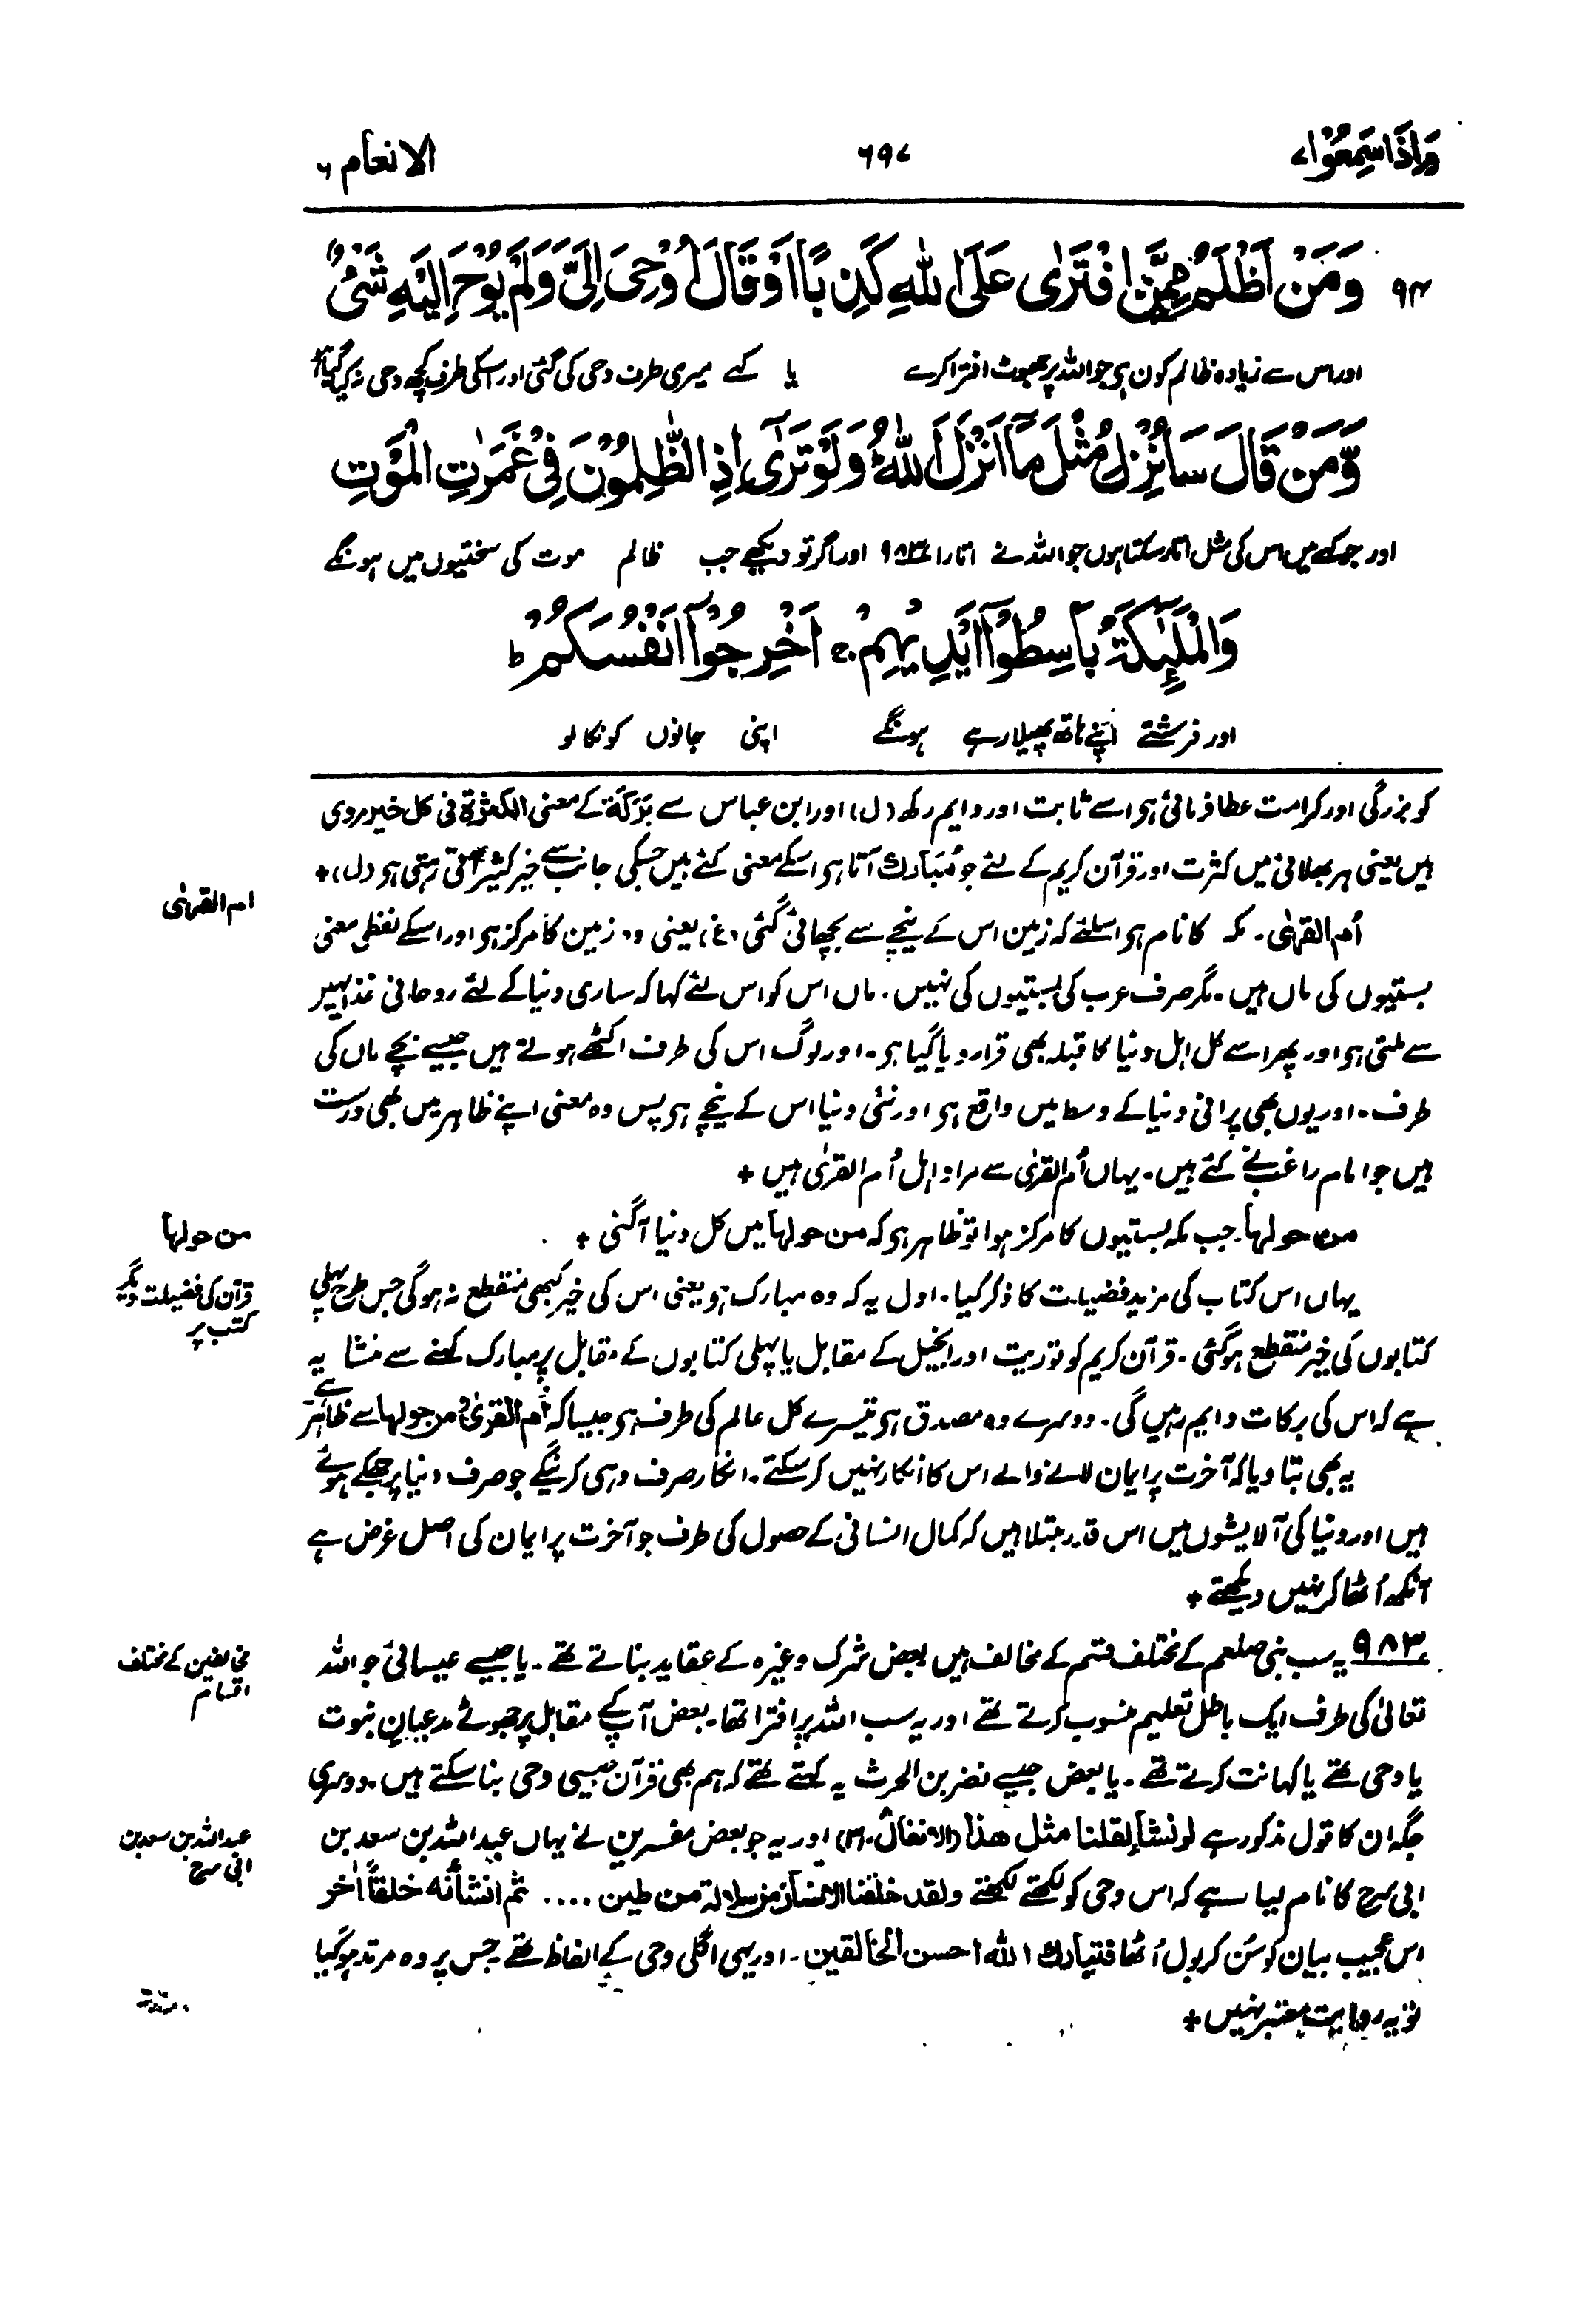 وَاِذَا سَمِعُوْا ۷
۶۹۷
الانعام ۶
۹۴ وَمَنْ اَظْلَمُ مِمَّنِ افْتَرٰی عَلَی اللّٰهِ كَذِبًا اَوْ قَالَ اُوْحِیَ اِلَیَّ وَلَمْ یُوْحَ اِلَیْهِ شَیْءٌ
اور اس سے زیادہ ظالم کون ہی جو اللہ پر جھوٹ افترا کرے یا کہے میری طرف وحی کی گئی اور اسکی طرف کچھ وحی نہ کیا گیا ہو
وَّمَنْ قَالَ سَاُنْزِلُ مِثْلَ مَاۤ اَنْزَلَ اللّٰهُ ؕ وَلَوْ تَرٰۤی اِذِ الظّٰلِمُوْنَ فِیْ غَمَرٰتِ الْمَوْتِ
اور جو کہے میں اس کی مثل اتار سکتا ہوں جو اللہ نے اتارا ۹۸۳ اور اگر تو دیکھے جب ظالم موت کی سختیوں میں ہونگے
وَالْمَلٰٓئِكَةُ بَاسِطُوْۤا اَیْدِیْهِمْ ۚ اَخْرِجُوْۤا اَنْفُسَكُمْ ؕ
اور فرشتے اپنے ہاتھ پھیلا رہے ہونگے اپنی جانوں کو نکالو
کو بزرگی اور کرامت عطا فرمائی ہو اسے ثابت اور دایم رکھ (ل) اور ابن عباس سے بَرَکَة کے معنی الکثرة فی کل خیر مروی
ہیں یعنی ہر بھلائی میں کثرت اور قرآن کریم کے لئے جو مُبَارَك آتا ہو اسکے معنی کئے ہیں جسکی جانب سے خیر کثیر آتی رہتی ہو (ل) +
ام القریٰ
اُم القریٰ۔ مکہ کا نام ہو اسلئے کہ زمین اس کے نیچے سے بچھائی گئی (غ) یعنی وہ زمین کا مرکز ہو اور اسکے لفظی معنی
بستیوں کی ماں ہیں۔ مگر صرف عرب کی بستیوں کی نہیں۔ ماں اس کو اس لئے کہا کہ ساری دنیا کے لئے روحانی غذا یہیں
سے ملتی ہو اور پھر اسے کل اہل دنیا کا قبلہ بھی قرار دیا گیا ہو۔ اور لوگ اس کی طرف اکٹھے ہوتے ہیں جیسے بچے ماں کی
طرف۔ اور یوں بھی پرانی دنیا کے وسط میں واقع ہو اور نئی دنیا اس کے نیچے ہو پس وہ معنی اپنے ظاہر میں بھی درست
ہیں جو امام راغب نے کئے ہیں۔ یہاں اُم القریٰ سے مراد اہل اُم القریٰ ہیں +
من حولها
من حولها۔ جب مکہ بستیوں کا مرکز ہوا تو ظاہر ہو کہ من حولها میں کل دنیا آگئی +
قرآن کی فضیلت دیگر
کتب پر
یہاں اس کتاب کی مزید فضیلت کا ذکر کیا۔ اول یہ کہ وہ مبارک ہو یعنی اس کی خیر کبھی منقطع نہ ہوگی جس طرح پہلی
کتابوں کی خیر منقطع ہوگئی۔ قرآن کریم کو توریت اور انجیل کے مقابل یا پہلی کتابوں کے مقابل پر مبارک کہنے سے منشا یہ
ہے کہ اس کی برکات دایم رہیں گی۔ دوسرے وہ مصدق ہو تیسرے کل عالم کی طرف ہو جیسا کہ اُم القریٰ و من حولها سے ظاہر ہے
یہ بھی بتا دیا کہ آخرت پر ایمان لانے والے اس کا انکار نہیں کر سکتے۔ انکار صرف وہی کرینگے جو صرف دنیا پر جھکے ہوئے
ہیں اور دنیا کی آلایشوں میں اس قدر مبتلا ہیں کہ کمال انسانی کے حصول کی طرف جو آخرت پر ایمان کی اصل غرض ہے
آنکھ اُٹھا کر نہیں دیکھتے +
مخالفین کے مختلف
اقسام
۹۸۳ یہ سب نبی صلعم کے مختلف قسم کے مخالف ہیں بعض شرک وغیرہ کے عقاید بناتے تھے۔ یا جیسے عیسائی جو اللہ
تعالیٰ کی طرف ایک باطل تعلیم منسوب کرتے تھے اور یہ سب اللہ پر افترا تھا۔ بعض آپ کے مقابل پر جھوٹے مدعیان نبوت
یا وحی تھے یا کہانت کرتے تھے۔ یا بعض جیسے نضر بن الحرث یہ کہتے تھے کہ ہم بھی قرآن جیسی وحی بنا سکتے ہیں۔ دوسری
عبداللہ بن سعد بن
ابی سرح
جگہ ان کا قول مذکور ہے لو نشاء لقلنا مثل هذا (الانفال۔ ۳۱) اور یہ جو بعض مفسرین نے یہاں عبداللہ بن سعد بن
ابی سرح کا نام لیا ہے کہ اس وحی کو لکھتے لکھتے ولقد خلقنا الانسان من سلالة من طین .... ثم انشأنه خلقاً اٰخر
اس عجیب بیان کو سُن کر بول اُٹھا فتبارك الله احسن الخالقین۔ اور یہی اگلی وحی کے الفاظ تھے جس پر وہ مرتد ہو گیا
تو یہ روایت معتبر نہیں +